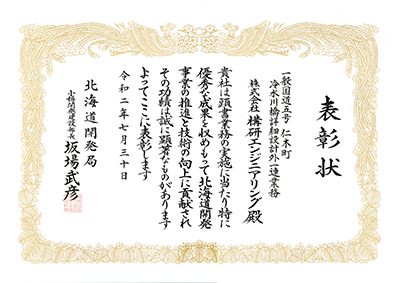 表彰状
一般国道五号 仁木町
冷水川橋詳細設計外一連業務
株式会社 構研エンジニアリング 殿
貴社は頭書業務の実施に当たり特に
優秀な成果を収めもって北海道開発
事業の推進と技術の向上に貢献され
その功績は誠に顕著なものがあります
よってここに表彰します
令和二年七月三十日
北海道開発局
小樽開発建設部長 坂場武彦